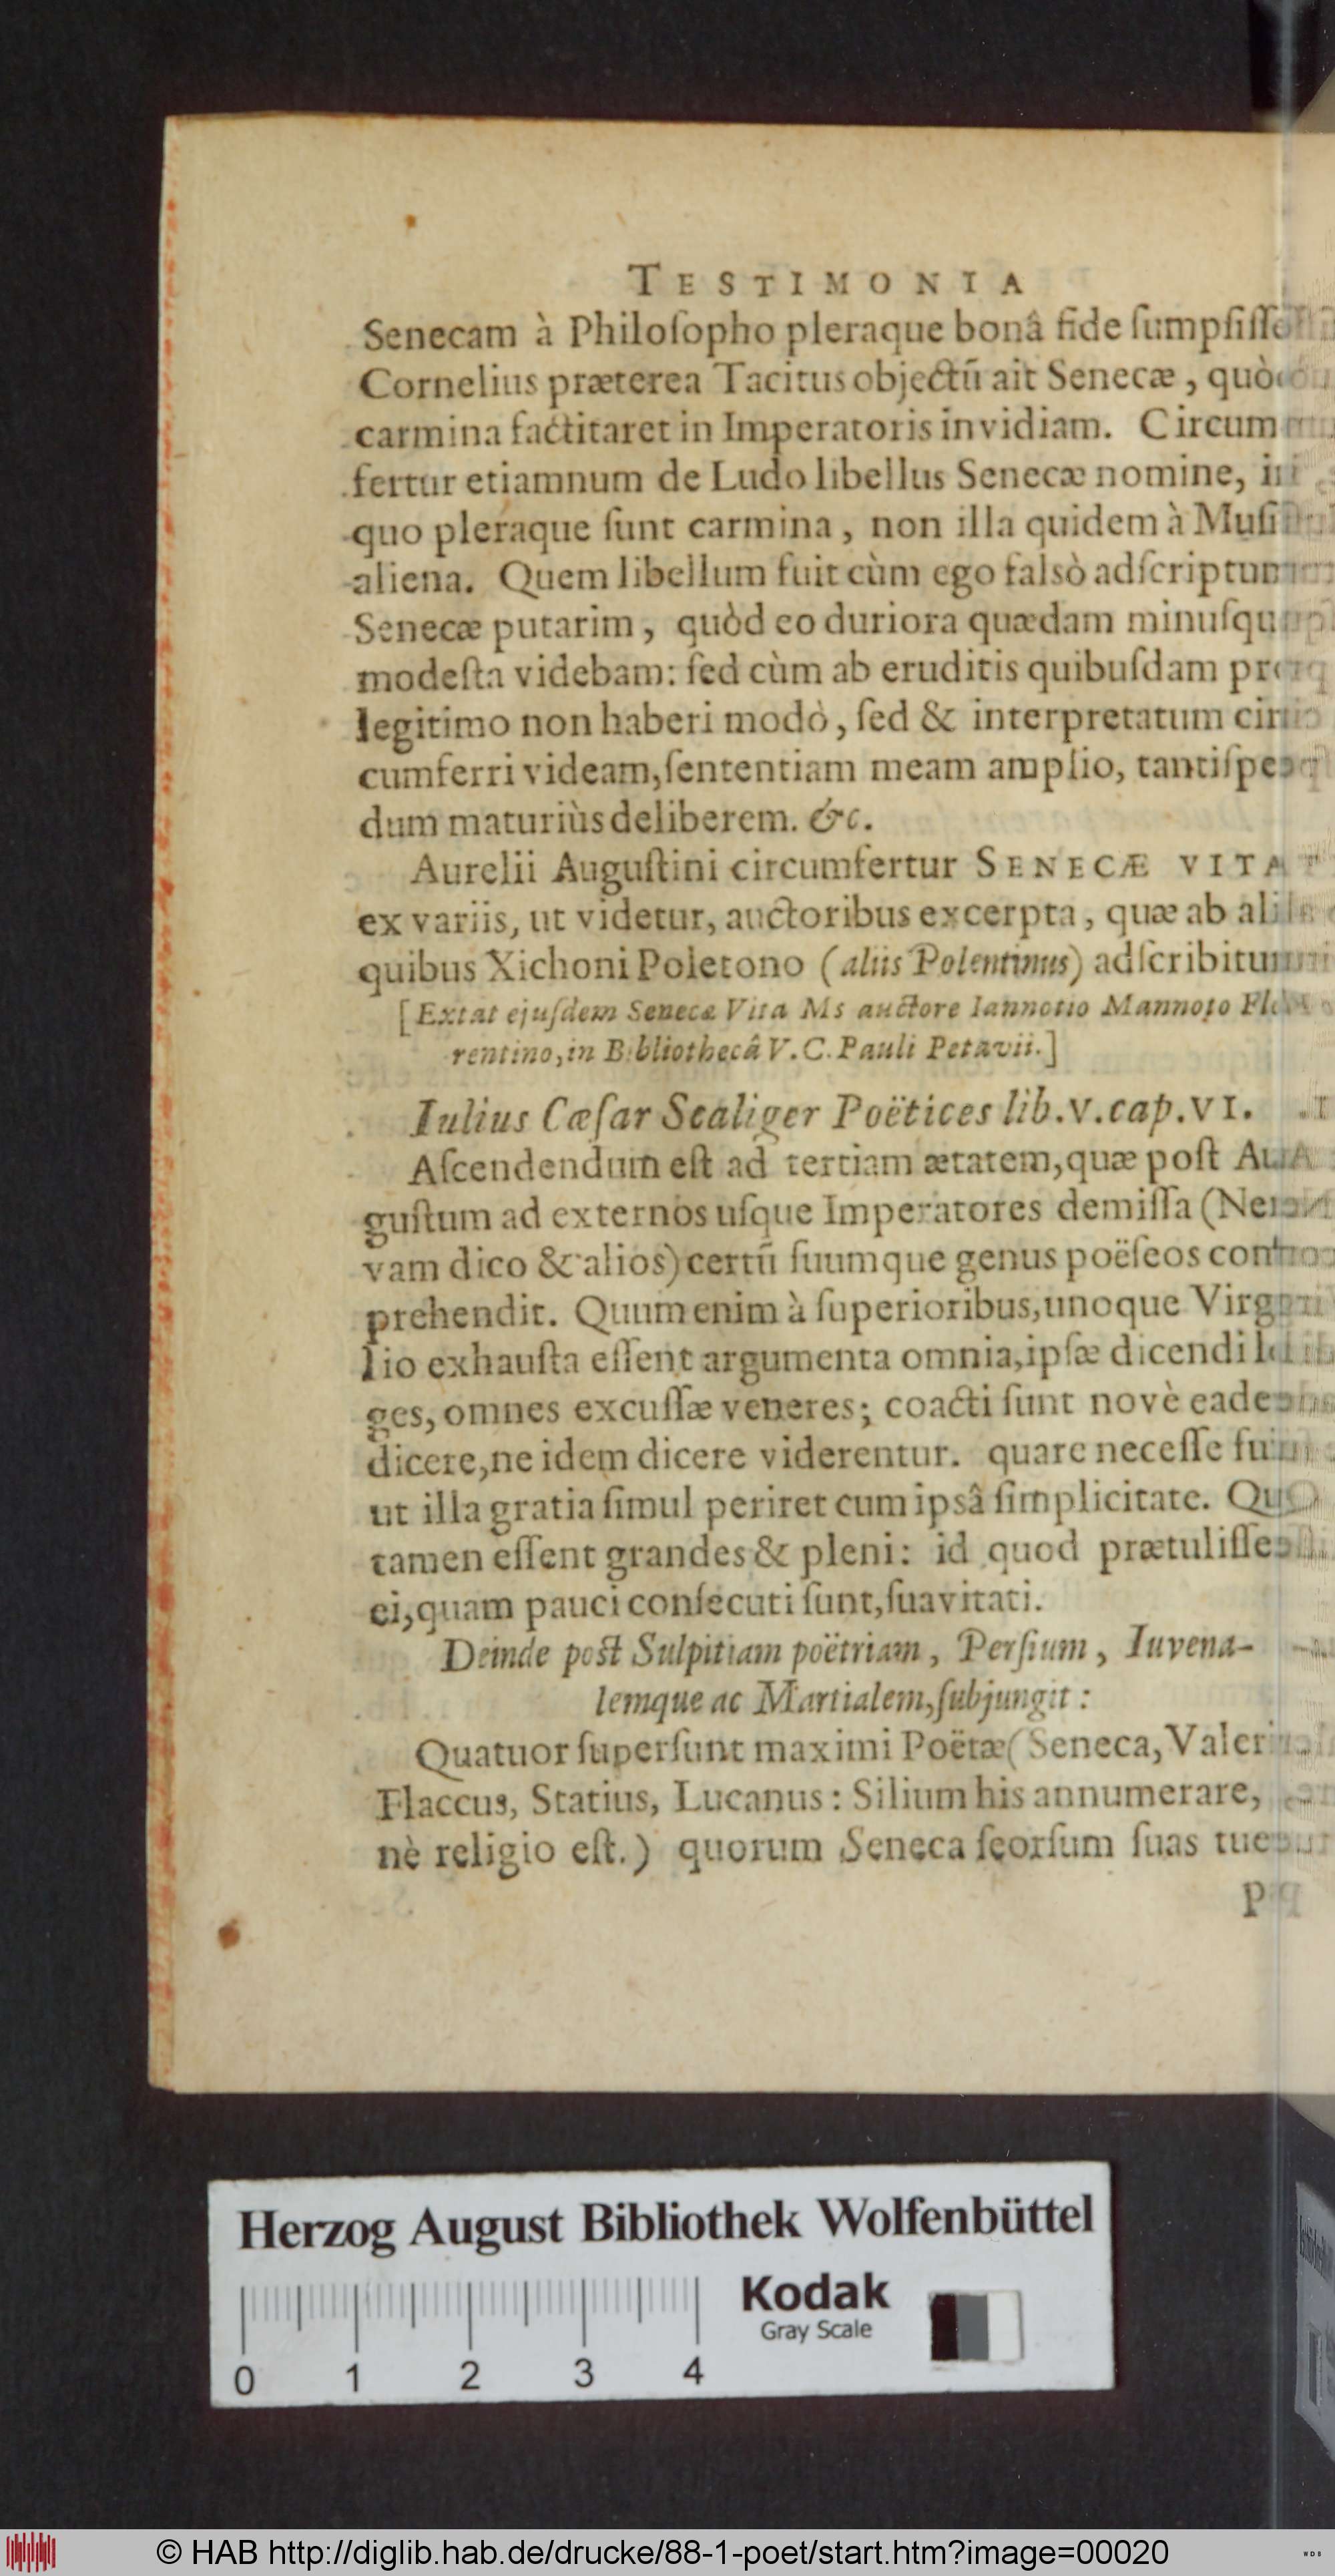 TESTIMONIA
Senecam à Philoſopho pleraque bonâ fide ſumpſiſſe
Cornelius præterea Tacitus objectū ait Senecæ, quò
carmina factitaret in Imperatoris invidiam. Circum
fertur etiamnum de Ludo libellus Senecæ nomine, in
quo pleraque ſunt carmina, non illa quidem à Muſi
aliena. Quem libellum fuit cùm ego falsò adſcriptum
Senecæ putarim, quòd eo duriora quædam minuſqu
modeſta videbam: ſed cùm ab eruditis quibuſdam pro
legitimo non haberi modò, ſed & interpretatum cir
cumferri videam, ſententiam meam amplio, tantiſpe
dum maturiùs deliberem. &c.
Aurelii Auguſtini circumfertur SENECÆ VITA
ex variis, ut videtur, auctoribus excerpta, quæ ab ali
quibus Xichoni Poletono (aliis Polentinus) adſcribitur
[Extat ejuſdem Senecæ Vita Ms auctore Iannotio Mannoto Flo
rentino, in Bibliothecâ V.C. Pauli Petavii.]
Iulius Cæſar Scaliger Poëtices lib.V.cap.VI.
Aſcendendum eſt ad tertiam ætatem, quæ poſt Au
guſtum ad externos uſque Imperatores demiſſa (Ner
vam dico & alios) certū ſuumque genus poëſeos com
prehendit. Quum enim à ſuperioribus, unoque Virgi
lio exhauſta eſſent argumenta omnia, ipſæ dicendi le
ges, omnes excuſſæ veneres; coacti ſunt novè eade
dicere, ne idem dicere viderentur. quare neceſſe fui
ut illa gratia ſimul periret cum ipsâ ſimplicitate. Qu
tamen eſſent grandes & pleni: id quod prætuliſſe
ei, quam pauci conſecuti ſunt, ſuavitati.
Deinde poſt Sulpitiam poëtriam, Perſium, Iuvena-
lemque ac Martialem, ſubjungit:
Quatuor ſuperſunt maximi Poëtæ (Seneca, Valeri
Flaccus, Statius, Lucanus: Silium his annumerare,
nè religio eſt.) quorum Seneca ſeorſum ſuas tue
p
Herzog August Bibliothek Wolfenbüttel
Kodak
Gray Scale
0 1 2 3 4
© HAB http://diglib.hab.de/drucke/88-1-poet/start.htm?image=00020